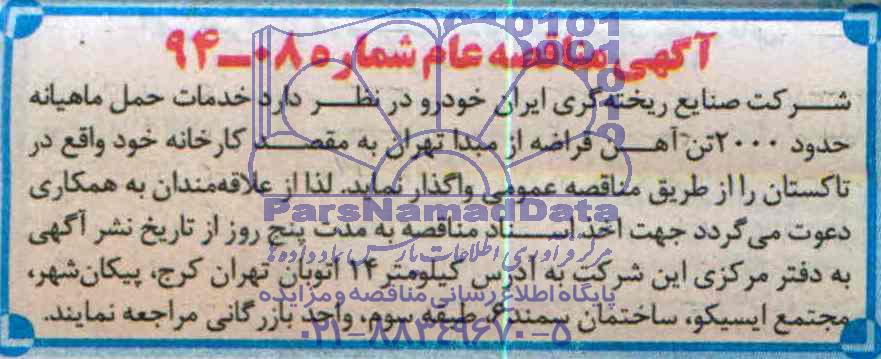 آگهی مناقصه عام شماره ۰۸–۹۴
شرکت صنایع ریخته‌گری ایران خودرو در نظر دارد خدمات حمل ماهیانه
حدود ۲۰۰۰تن آهن قراضه از مبدا تهران به مقصد کارخانه خود واقع در
تاکستان را از طریق مناقصه عمومی واگذار نماید. لذا از علاقه‌مندان به همکاری
دعوت می‌گردد جهت اخذ اسناد مناقصه به مدت پنج روز از تاریخ نشر آگهی
به دفتر مرکزی این شرکت به آدرس کیلومتر ۱۴ اتوبان تهران کرج، پیکان‌شهر،
مجتمع ایسیکو، ساختمان سمند ۶، طبقه سوم، واحد بازرگانی مراجعه نمایند.
ParsNamadData
مرکز فرآوری اطلاعات پارس نماد داده‌ها
پایگاه اطلاع رسانی مناقصه و مزایده
۰۲۱-۸۸۳۴۹۶۷۰-۵